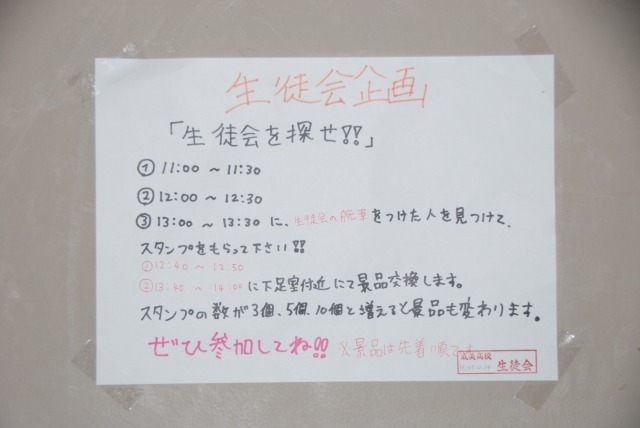 生徒会企画
「生徒会を探せ!!」
① 11:00 ～ 11:30
② 12:00 ～ 12:30
③ 13:00 ～ 13:30 に、生徒会の腕章をつけた人を見つけて、
スタンプをもらって下さい!!
① 12:40 ～ 12:50
② 13:40 ～ 14:00 に下足室付近にて景品交換します。
スタンプの数が3個、5個、10個と増えると景品も変わります。
ぜひ参加してね!! ※景品は先着順です
高校
生徒会